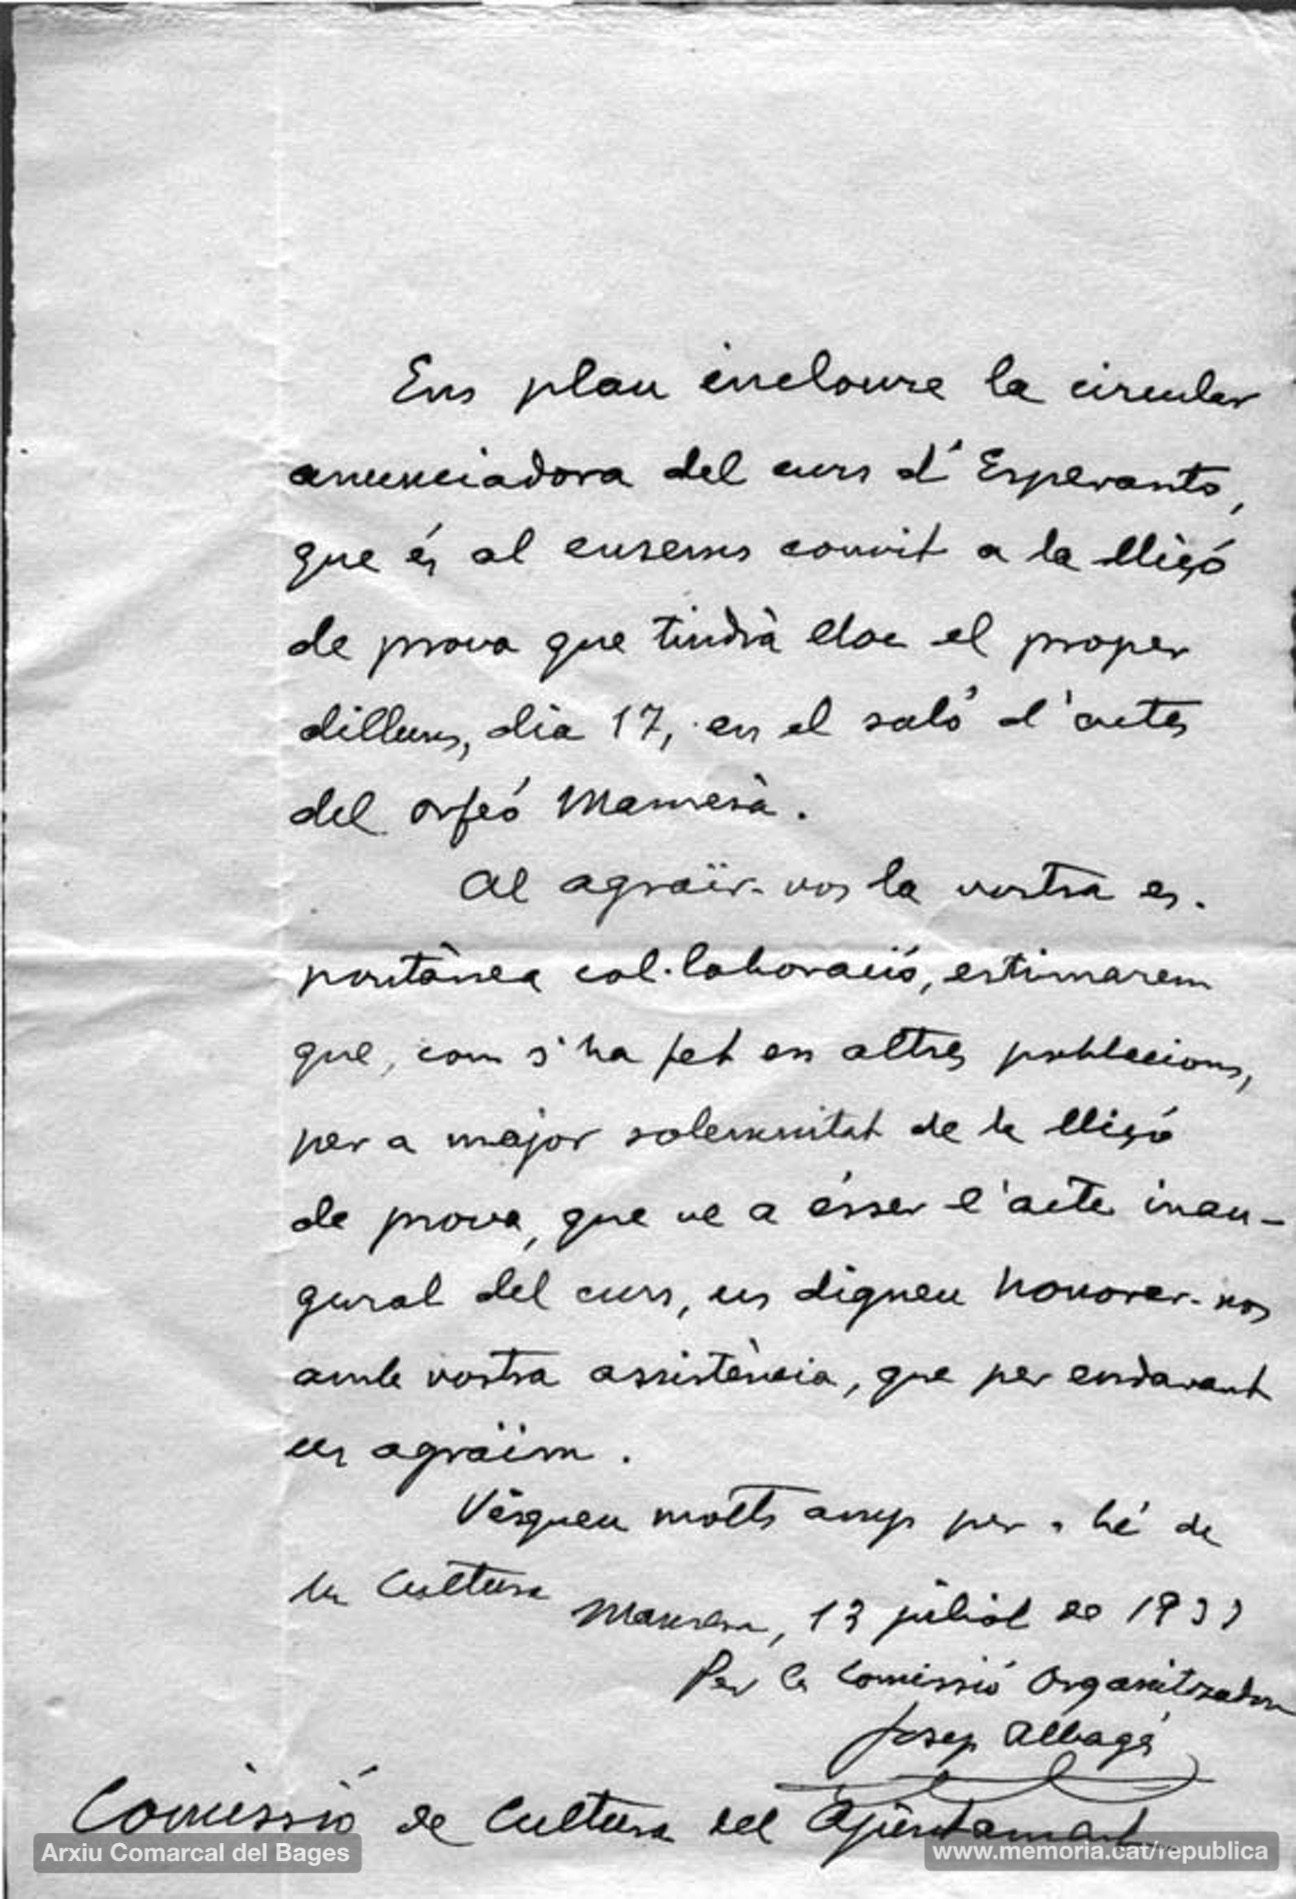 Ens plau incloure la circular
anunciadora del curs d'Esperanto,
que és al ensems convit a la lliçó
de prova que tindrà lloc el proper
dilluns, dia 17, en el saló d'actes
del Orfeó Manresà.
Al agraïr-vos la vostra es-
pontànea col·laboració, estimarem
que, com s'ha fet en altres poblacions,
per a major solemnitat de la lliçó
de prova, que ve a ésser l'acte inau-
gural del curs, us digneu honorar-nos
amb vostra assistència, que per endavant
us agraïm.
Visqueu molts anys per a bé de
la Cultura
Manresa, 13 juliol de 1933
Per la Comissió Organitzadora
Josep Albagés
Comissió de Cultura del Ajuntament
Arxiu Comarcal del Bages
www.memoria.cat/republica